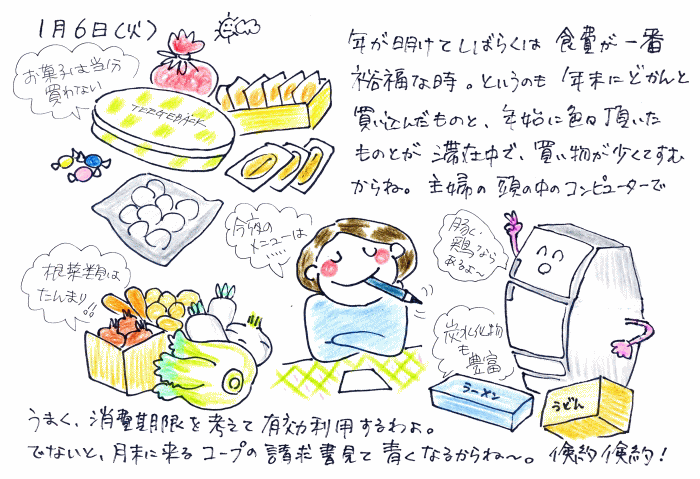 1月6日(火)
年が明けてしばらくは 食費が一番
裕福な時。というのも 年末にどかんと
買い込んだものと、年始に色々頂いた
ものとが 滞在中で、買い物が少くてすむ
からね。主婦の頭の中のコンピューターで
お菓子は当分
買わない
TEEGEBÄCK
今夜の
メニューは
....
豚、
鶏なら
あるよ〜
根菜類は
たんまり!!
炭水化物
も
豊富
ラーメン
うどん
うまく、消費期限を考えて有効利用するわよ。
でないと、月末に来るコープの請求書見て青くなるからね〜。倹約倹約!